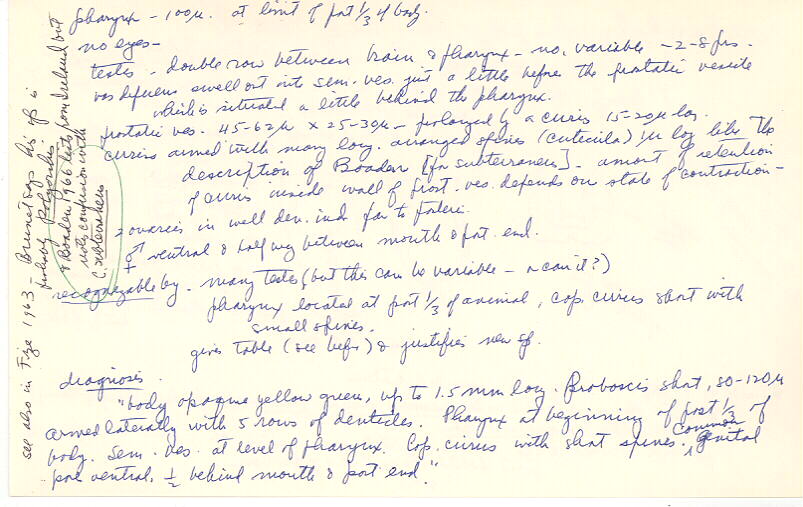 pharynx - 100µ. at limit of post 1/3 of body.
no eyes -
testes - double row between brain & pharynx - no. variable - 2-8 prs.
vas deferens swell out into sem. ves. just a little before the prostatic vesicle
which is situated a little behind the pharynx.
prostatic ves. 45-62µ x 25-30µ - prolonged by a cirrus 15-20µ long.
cirrus armed with many long. arranged spines (cuticula) 1µ long like the
description of Boaden [for subterraneus] - amount of retention
of cirrus inside wall of prost. ves. depends on state of contraction -
2 ovaries in well dev. ind. far to posteri.
ventral & half way between mouth & post. end.
recognizable by - many testes (but this can be variable - or can it?)
pharynx located at post 1/3 of animal, cop. cirrus short with
small spines.
gives table (see before) & justifies new sp.
diagnosis.
"body opaque yellow green, up to 1.5 mm long. Proboscis short, 80-120µ
armed laterally with 5 rows of denticles. Pharynx at beginning of post 1/3 of
body. Sem. ves. at level of pharynx. Cop. cirrus with short spines. common genital
pore ventral, 1/2 behind mouth & post end."
see also in Fize 1963. Brunet says his sp is
probably polyorchis
& Boaden 1966 lists from Ireland but
notes confusion with
C. subterraneus